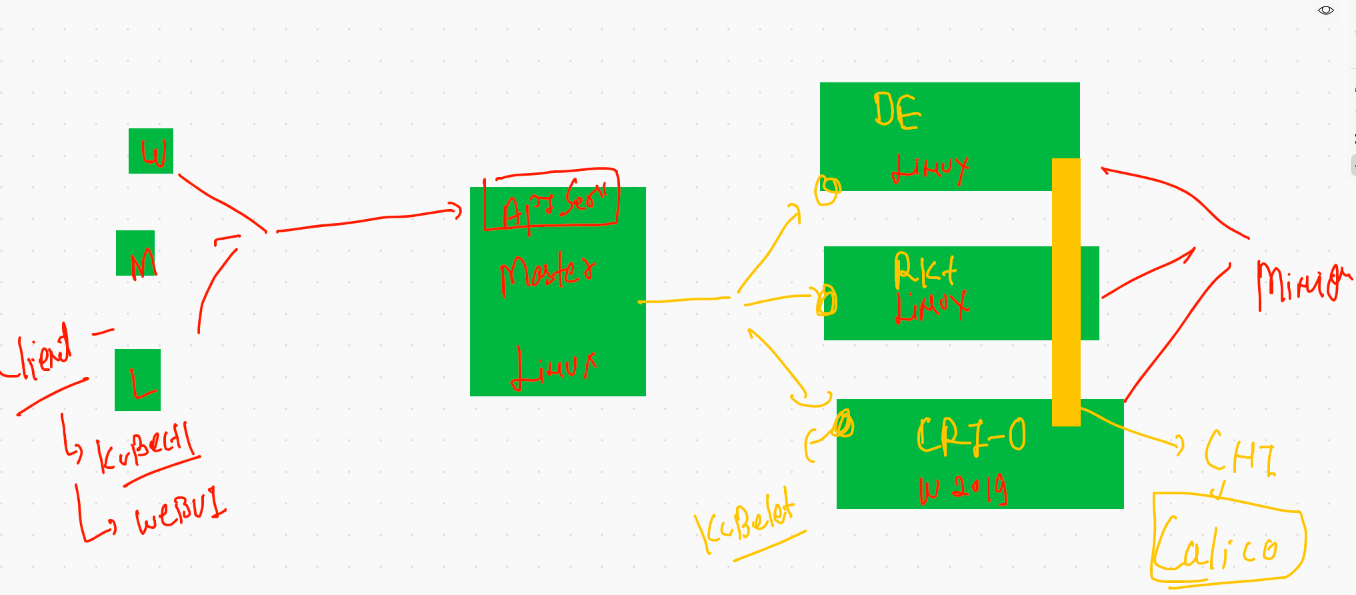 W
M
L
Client
KuBectl
WeBUI
Api Serv
Master
Linux
DE
Linux
RKt
Linux
CRI-O
W 2019
KuBelet
Minion
CNI
Calico